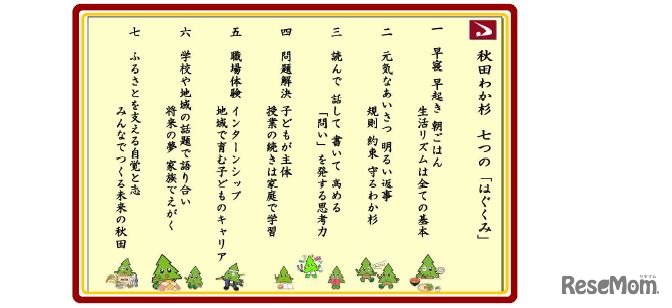 秋田わか杉 七つの「はぐくみ」
一 早寝 早起き 朝ごはん
生活リズムは全ての基本
二 元気なあいさつ 明るい返事
規則 約束 守るわか杉
三 読んで 話して 書いて 高める
「問い」を発する思考力
四 問題解決 子どもが主体
授業の続きは家庭で学習
五 職場体験 インターンシップ
地域で育む子どものキャリア
六 学校や地域の話題で語り合い
将来の夢 家族でえがく
七 ふるさとを支える自覚と志
みんなでつくる未来の秋田
リセマム
ReseMom.